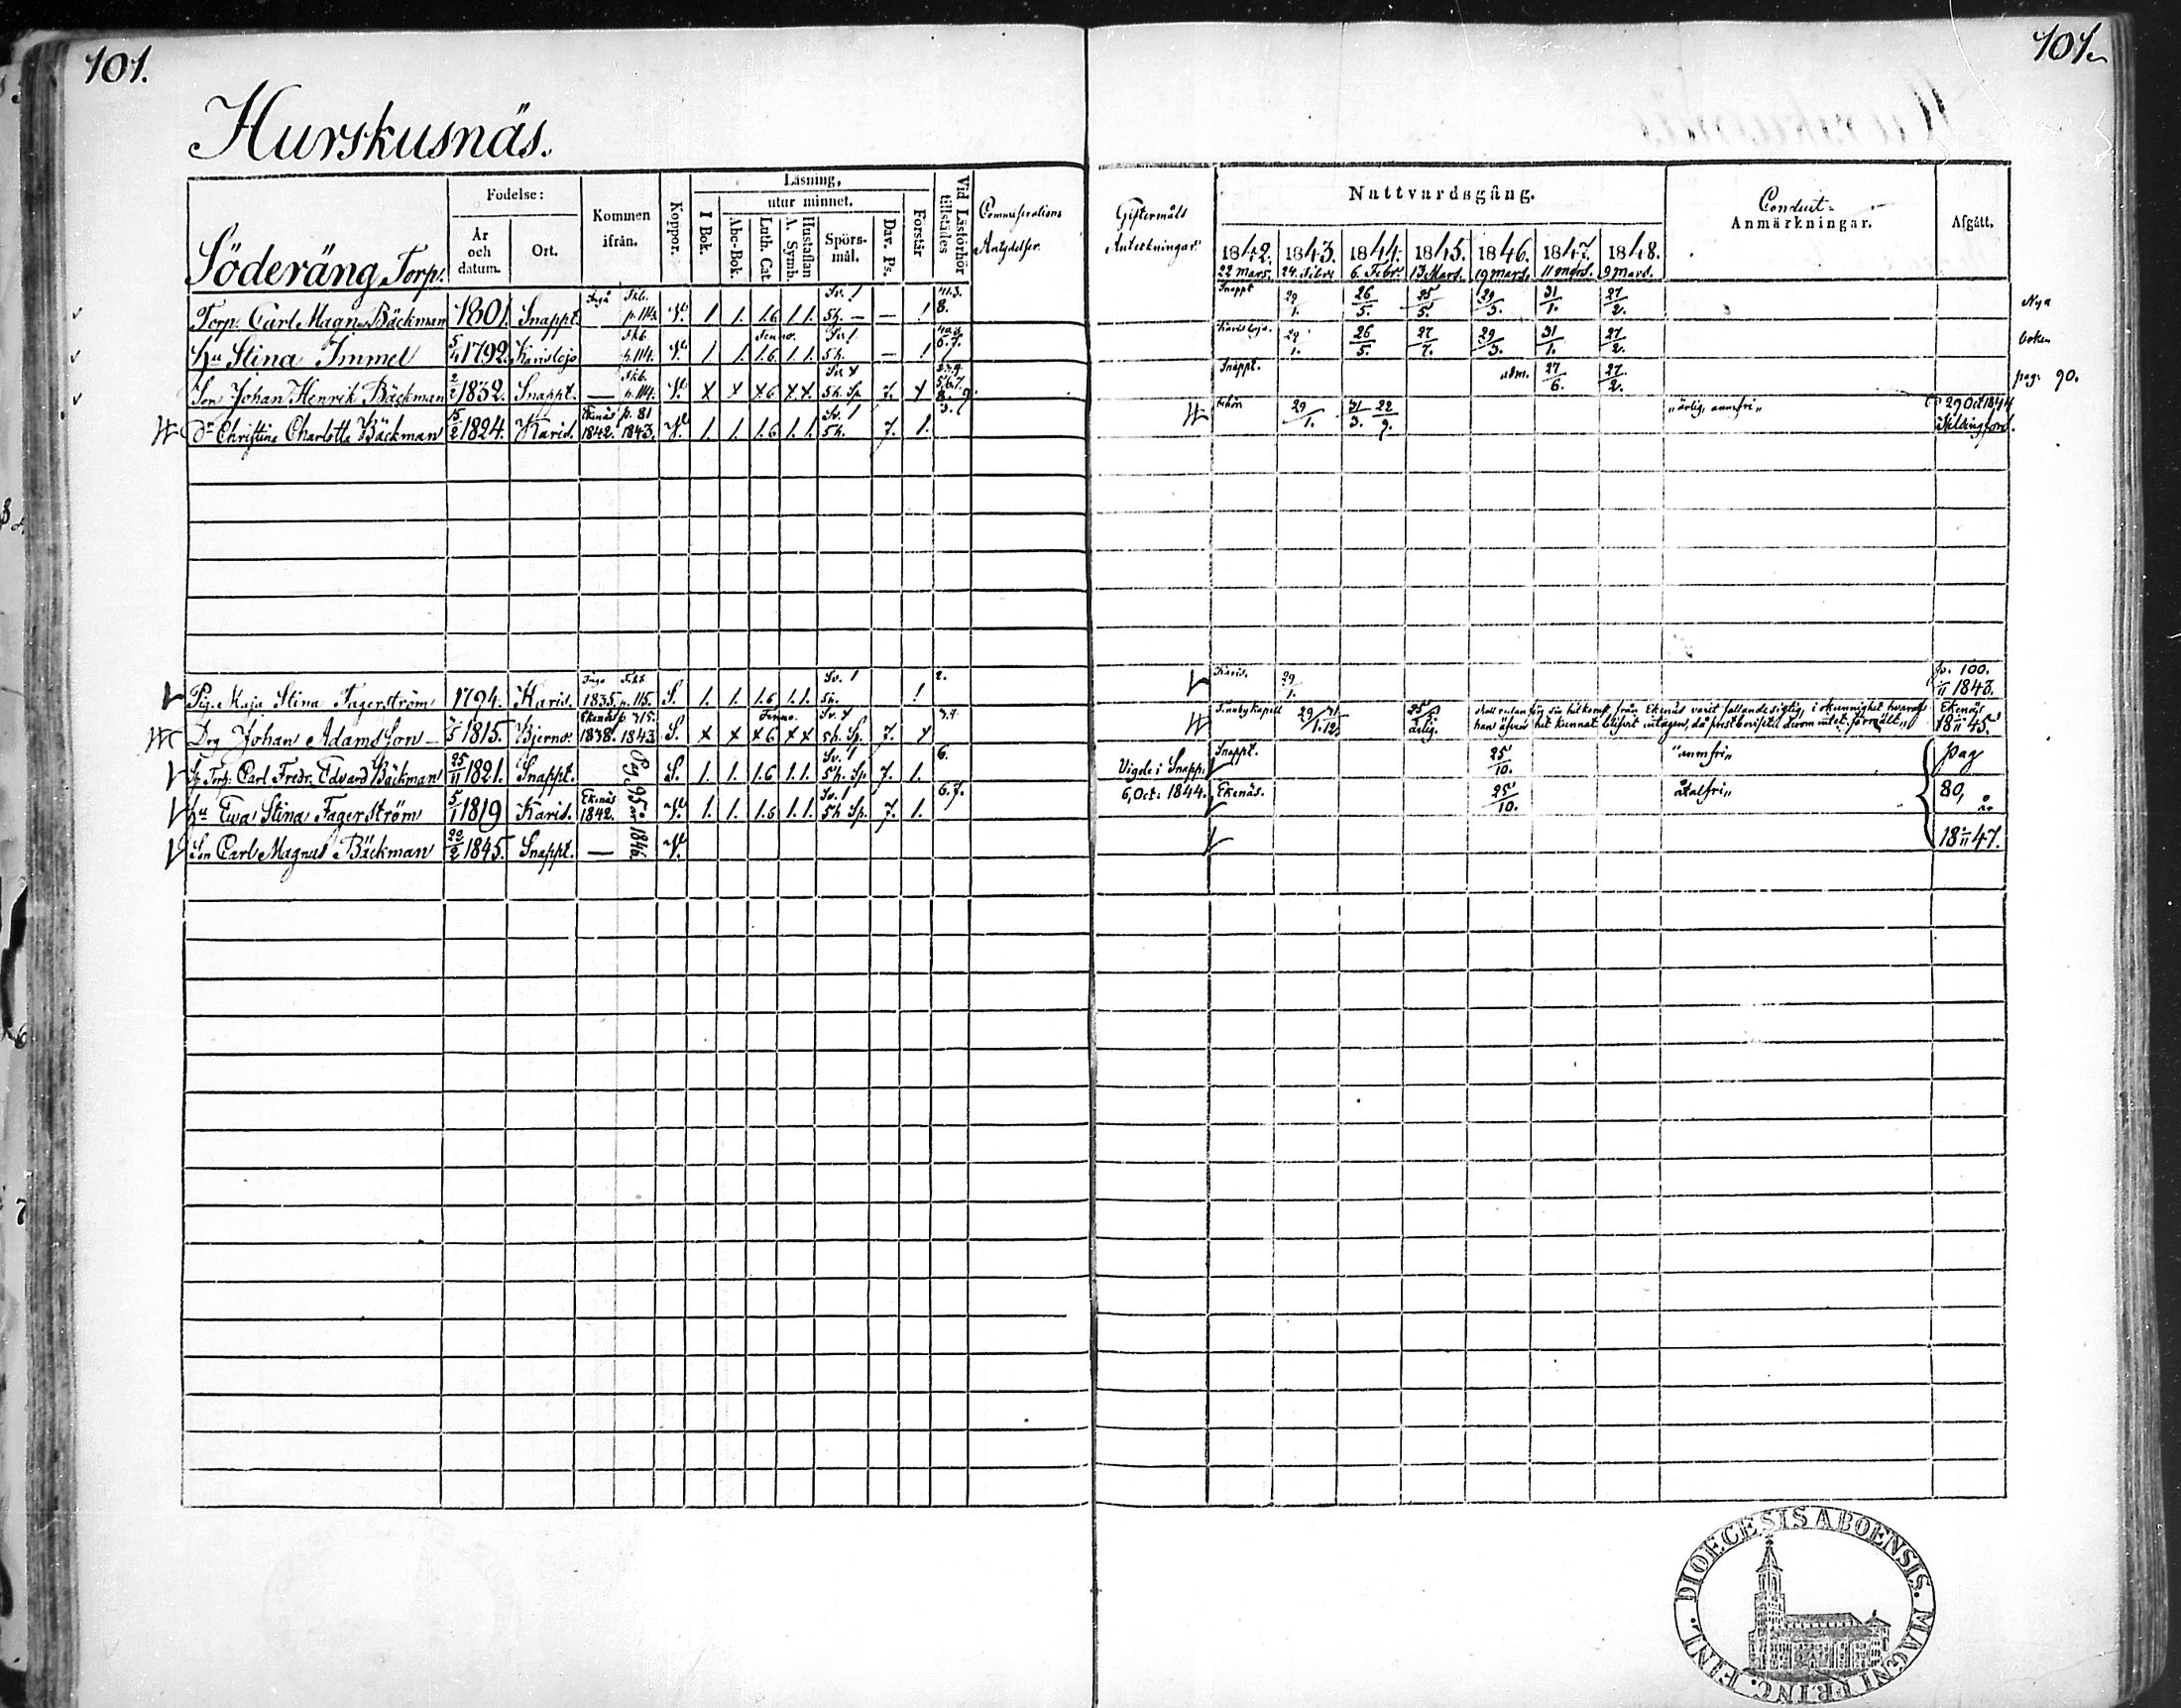 101.
101.
Hurskusnäs.
Söderäng Torp.
Födelse:
År och datum.
Ort.
Kommen ifrån.
Koppor.
Läsning,
utur minnet.
I Bok.
Abc-Bok.
Luth. Cat.
A. Symb.
Hustaflan
Spörs-mål.
Dav. Ps.
Förstår
Vid Läsförhör tillstädes
Giftermåls
Nattvardsgång.
1842. 1843. 1844. 1845. 1846. 1847. 1848.
22 Mars. 24 Febr. 6. Febr. 13 Mars. 19 Mars. 11 Mars. 9 Mars.
Conduit-
Anmärkningar.
Afgått.
Torp. Carl Magn. Bäckman 1801. Snappt. 1 1. 1.6 1.1. Sv. 1 5h. — — 1 8. Snappt 29/1. 26/5. 25/5. 29/3. 31/1. 27/2. Nya
Hu Stina Immel 5/4 1792. Karislojo p. 114. 1 1. 1.6 1.1. 5h. — 1 Karislojo. 29/1. 26/5. 27/7. 29/3. 31/1. 27/2. boken
Son Johan Henrik Bäckman 2/2 1832. Snappt. — p. 114. x x x6 xx 5h Sp 7. x Snappt. adm. 27/6. 27/2. pag. 90.
Dr Christina Charlotta Bäckman 15/2 1824. Karis. Ekenäs 1842. p. 81 1843. 1. 1. 1.6 1.1. Sv. 1 5h. 7. 1. 29/1. 31/3. 22/9. "ärlig, anmfri" 29 Oct 1844 Helsingfors.
Pig. Maja Stina Fagerström 1794. Karis. Ingo 1835. p. 115. S. 1. 1. 1.6 1.1. Sv. 1 5h. 1 2. Karis. 29/1. p. 100. 1843.
Drg Johan Adamsson — 1815. Bjerno. Ekenäs 1838. p. 315. 1843 S. x x x6 xx Sv. x 5h. Sp. 7. x 3.4. Finnby Kapell 29/1. 31/12. 25/5 ärlig. Skall redan för sin hitkomst från Ekenäs varit fallandesigtig, i okunnighet hvaraf Ekenäs
han äfven hit kunnat blifvit intagen, då prestbeviset derom intet förmält. 18 45.
Torp: Carl Fredr. Edvard Bäckman 25/11 1821. Snappt. S. 1. 1. 1.6 1.1. Sv. 1 5h. Sp. 7. 1. 6. Vigde i Snapp. Snappt. 25/10. "anmfri" pag
Hu Ewa Stina Fagerström 5/1 1819 Karis. Ekenäs 1842. 1. 1. 1.6 1.1. Sv. 1 5h Sp. 7. 1. 6.7. 6, Oct. 1844. Ekenäs. 25/10. åtalfri" 80, år
Son Carl Magnus Bäckman 20/2 1845. Snappt. — 18 47.
Pag 95. 1846.
DIOECESIS ABOENSIS. MAGNI PRINC. FINL.